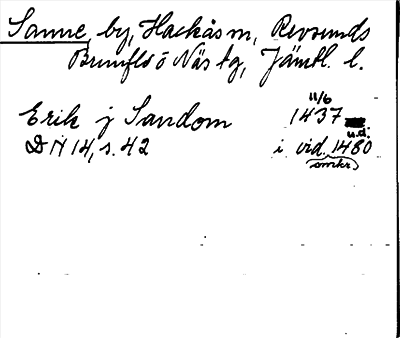 Sanne, by, Hackås sn, Revsunds
Brunflo o Näs tg, Jämtl. l.
Erik j Sandom
11/6
1437
DN 14, s. 42
u.d.
i vid. 1480
omkr.